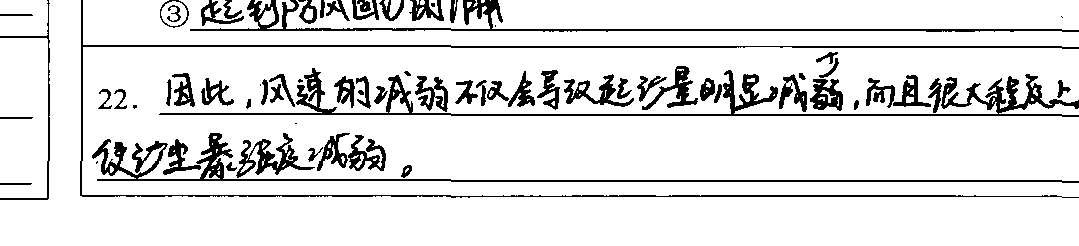 ③ 起到防风固沙的作用
22. 因此，风速的减弱不仅会导致起沙量明显减少，而且很大程度上
使沙尘暴强度减弱。